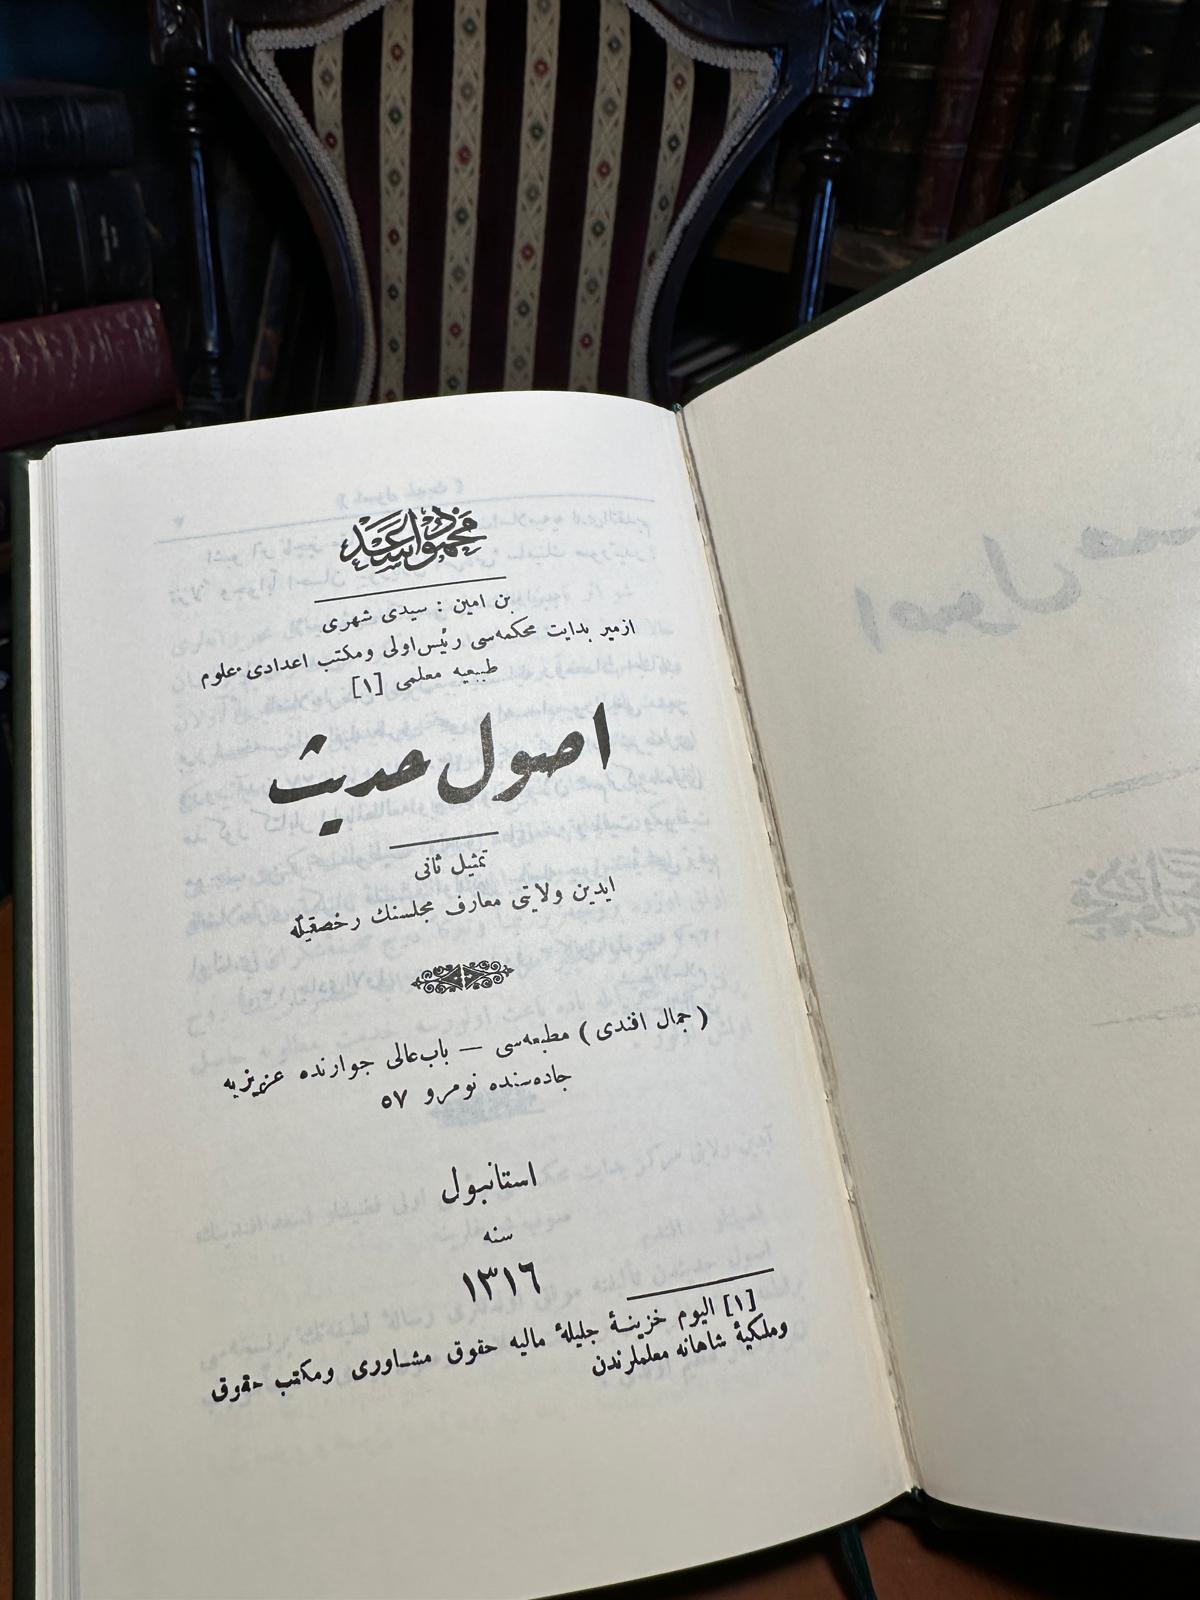 محمود اسعد
بن امين : سيدى شهرى
ازمير بدايت محكمه‌سى رئيس اولى ومكتب اعدادى علوم
طبيعيه معلمى [١]
اصول حديث
تمثيل ثانى
ايدين ولايتى معارف مجلسنك رخصتيله
( جمال افندى ) مطبعه‌سى — باب‌عالى جوارنده عزيزيه
جاده‌سنده نومرو ٥٧
استانبول
سنه
١٣١٦
[١] اليوم خزينۀ جليلۀ ماليه حقوق مشاورى ومكتب حقوق
وملكيۀ شاهانه معلملرندن